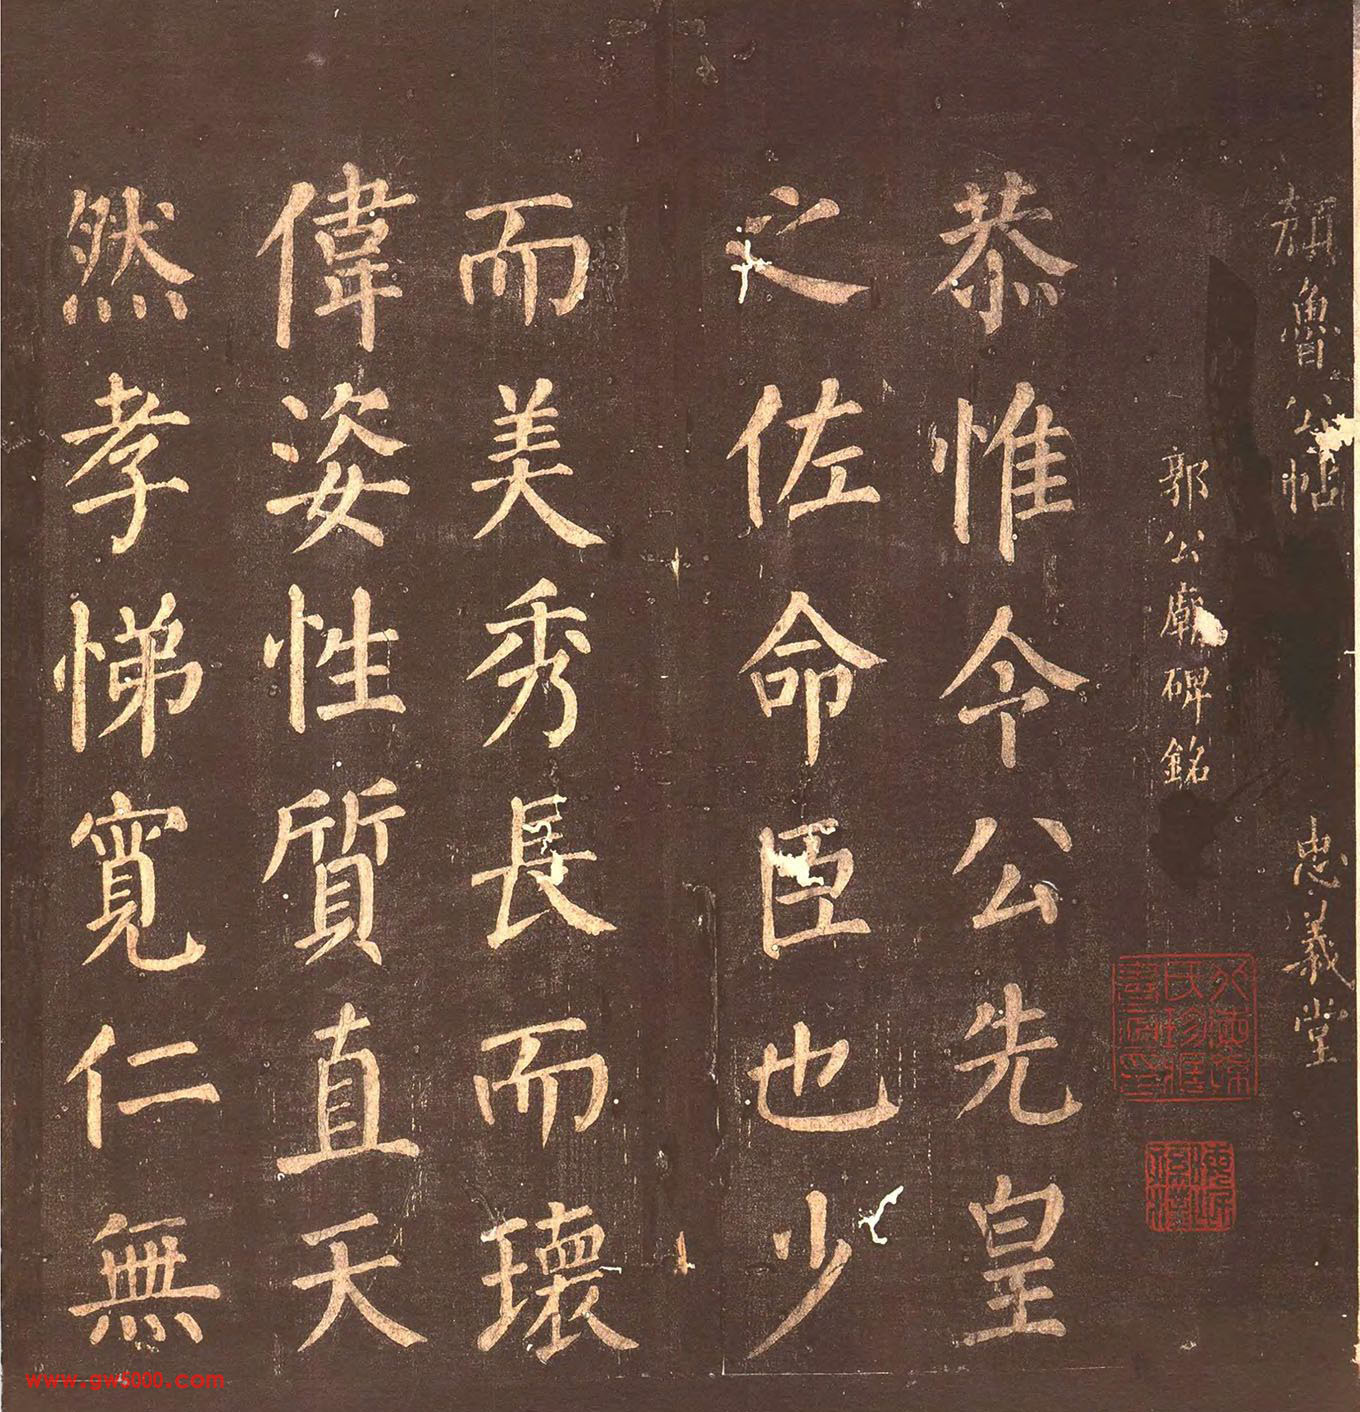 顏魯公帖 忠義堂
郭公廟碑銘
恭惟今公先皇
之佐命臣也少
而美秀長而瓌
偉姿性質直天
然孝悌寬仁無
www.gw5000.com